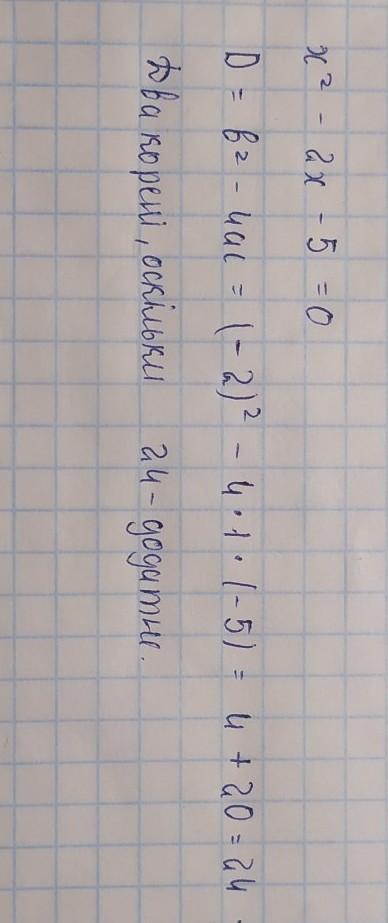 x² - 2x - 5 = 0
D = b² - 4ac = (-2)² - 4·1·(-5) = 4 + 20 = 24.
Два корені, оскільки 24 - додатнє.